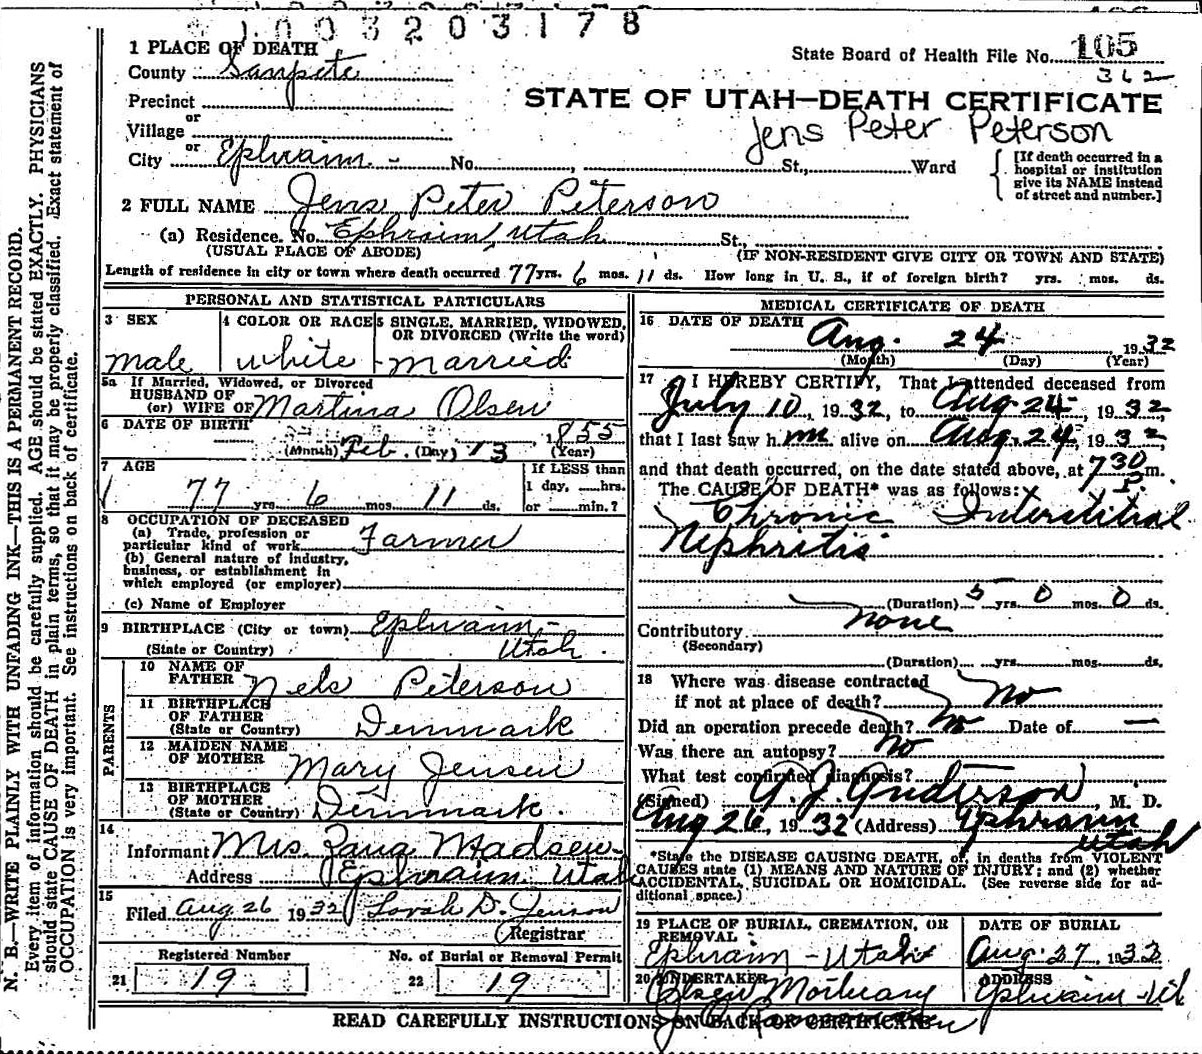 1003203178
1 PLACE OF DEATH
State Board of Health File No. 105
County Sanpete
362
Precinct
STATE OF UTAH—DEATH CERTIFICATE
or
Village
Jens Peter Peterson
or
City Ephraim - No. , St., Ward
[If death occurred in a hospital or institution give its NAME instead of street and number.]
2 FULL NAME Jens Peter Peterson
(a) Residence. No. Ephraim, Utah St.,
(USUAL PLACE OF ABODE) (IF NON-RESIDENT GIVE CITY OR TOWN AND STATE)
Length of residence in city or town where death occurred 77 yrs. 6 mos. 11 ds. How long in U. S., if of foreign birth? yrs. mos. ds.
PERSONAL AND STATISTICAL PARTICULARS
3 SEX 4 COLOR OR RACE 5 SINGLE, MARRIED, WIDOWED,
OR DIVORCED (Write the word)
male white married
5a If Married, Widowed, or Divorced
HUSBAND OF
(or) WIFE OF Martina Olsen
6 DATE OF BIRTH
(Month) Feb. (Day) 13 1855 (Year)
7 AGE
If LESS than
1 day, hrs.
77 yrs. 6 mos. 11 ds. or min.?
8 OCCUPATION OF DECEASED
(a) Trade, profession or
particular kind of work Farmer
(b) General nature of industry,
business, or establishment in
which employed (or employer)
(c) Name of Employer
9 BIRTHPLACE (City or town) Ephraim -
(State or Country) Utah.
PARENTS
10 NAME OF
FATHER Nels Peterson
11 BIRTHPLACE
OF FATHER
(State or Country) Denmark
12 MAIDEN NAME
OF MOTHER Mary Jensen
13 BIRTHPLACE
OF MOTHER
(State or Country) Denmark.
14
Informant Mrs. Madsen
Address Ephraim Utah
15
Filed Aug 26 1932 Sarah D. Jenson
Registrar
Registered Number No. of Burial or Removal Permit
21 19 22 19
MEDICAL CERTIFICATE OF DEATH
16 DATE OF DEATH
Aug. 24 1932
(Month) (Day) (Year)
17 I HEREBY CERTIFY, That I attended deceased from
July 10, 1932, to Aug 24, 1932,
that I last saw him alive on Aug. 24, 1932,
and that death occurred, on the date stated above, at 7 30 P m.
The CAUSE OF DEATH* was as follows:
Chronic Interstitial
Nephritis
(Duration) 5 yrs. 0 mos. 0 ds.
Contributory none
(Secondary)
(Duration) yrs. mos. ds.
18 Where was disease contracted
if not at place of death? No
Did an operation precede death? No Date of —
Was there an autopsy? No
What test confirmed diagnosis?
(Signed) Anderson, M. D.
Aug 26, 1932 (Address) Ephraim
Utah
*State the DISEASE CAUSING DEATH, or, in deaths from VIOLENT
CAUSES state (1) MEANS AND NATURE OF INJURY; and (2) whether
ACCIDENTAL, SUICIDAL OR HOMICIDAL. (See reverse side for ad-
ditional space.)
19 PLACE OF BURIAL, CREMATION, OR
REMOVAL
Ephraim - Utah
DATE OF BURIAL
Aug. 27 1932
20 UNDERTAKER
Olsen Mortuary
ADDRESS
Ephraim - Ut
READ CAREFULLY INSTRUCTIONS ON BACK OF CERTIFICATE
N. B.—WRITE PLAINLY WITH UNFADING INK—THIS IS A PERMANENT RECORD.
Every item of information should be carefully supplied. AGE should be stated EXACTLY. PHYSICIANS
should state CAUSE OF DEATH in plain terms, so that it may be properly classified. Exact statement of
OCCUPATION is very important. See instructions on back of certificate.